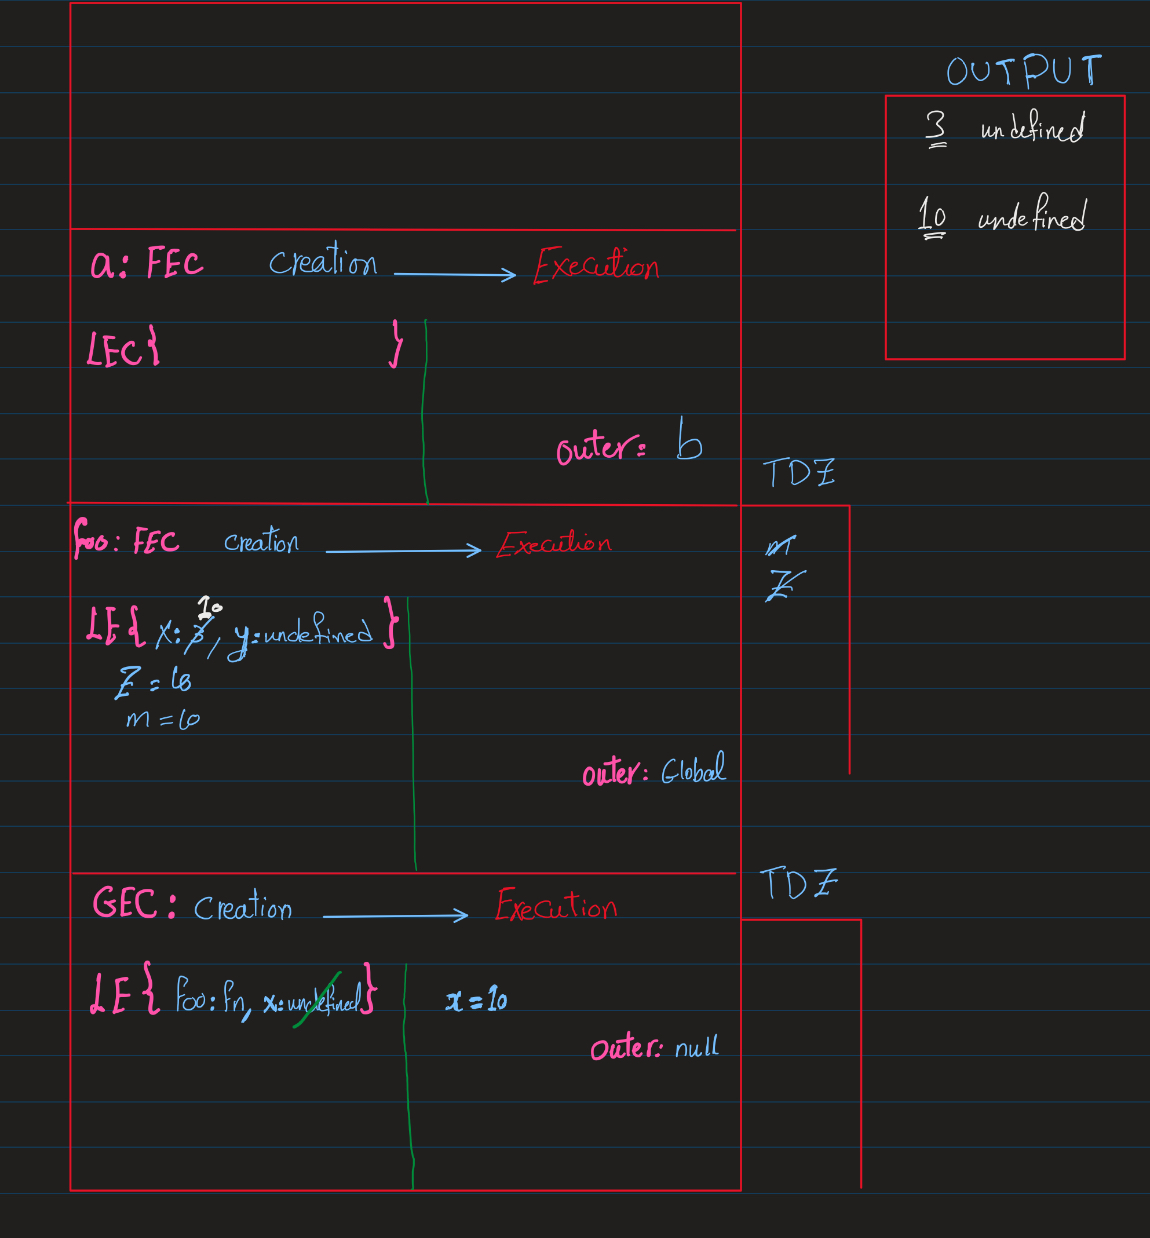 OUTPUT
3 undefined
10 undefined
a: FEC creation Execution
LEC{ }
outer: b
TDZ
foo: FEC creation Execution
m
Z
10
LE{ x: 3, y: undefined }
Z = 10
m = 10
outer: Global
TDZ
GEC: Creation Execution
LE { foo: fn, x: undefined } x = 10
outer: null